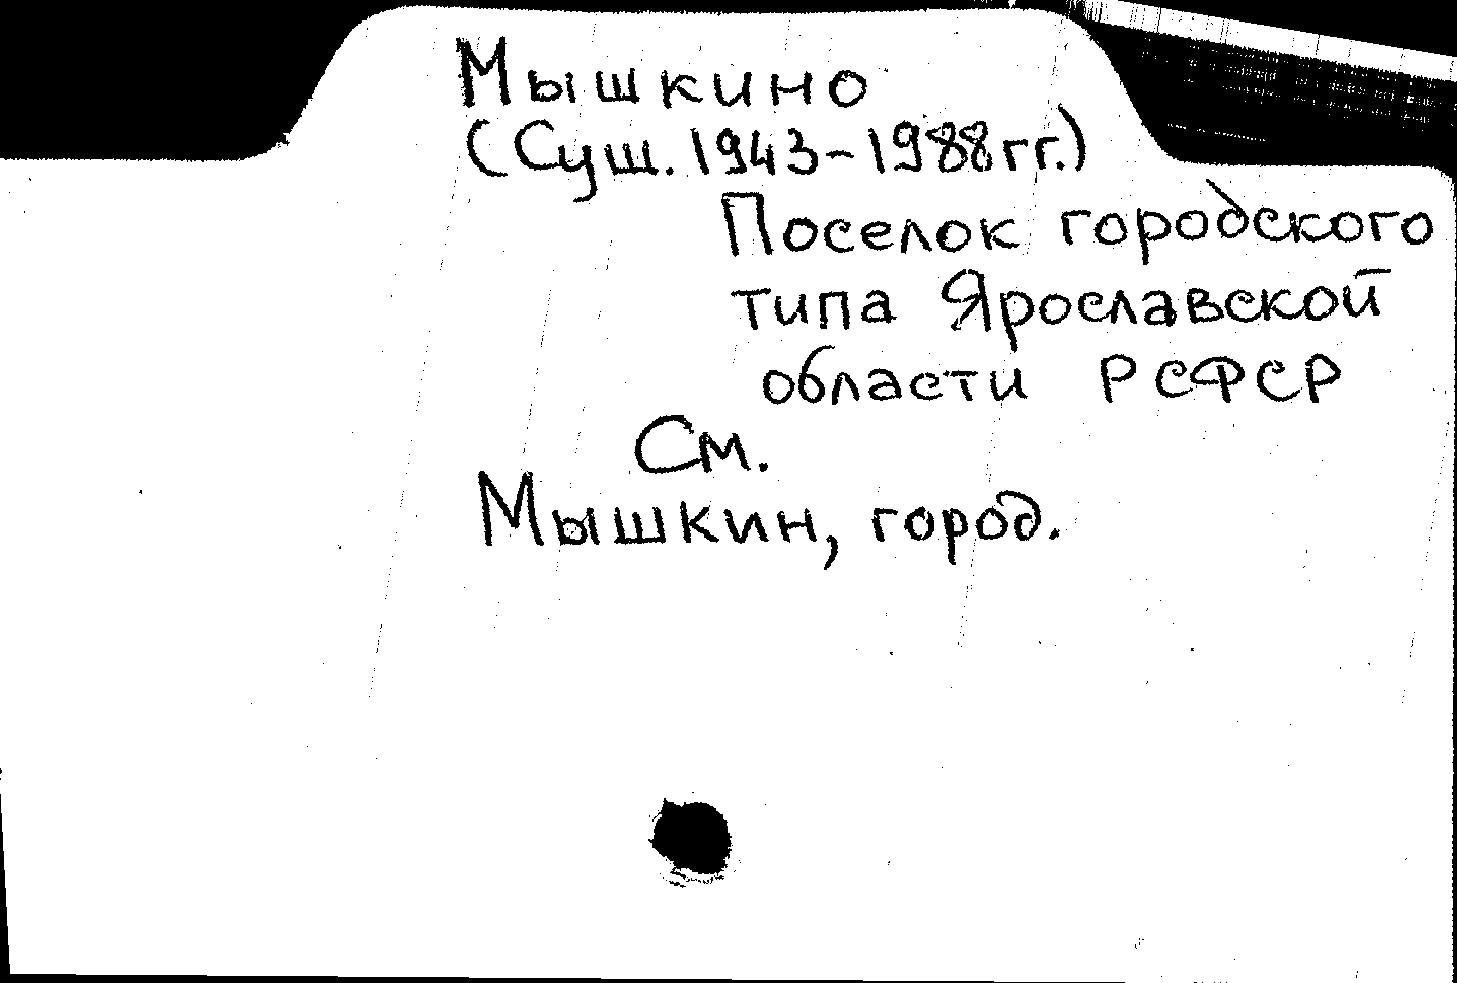 Мышкино
(Сущ. 1943-1988 гг.)
Поселок городского
типа Ярославской
области РСФСР
См.
Мышкин, город.